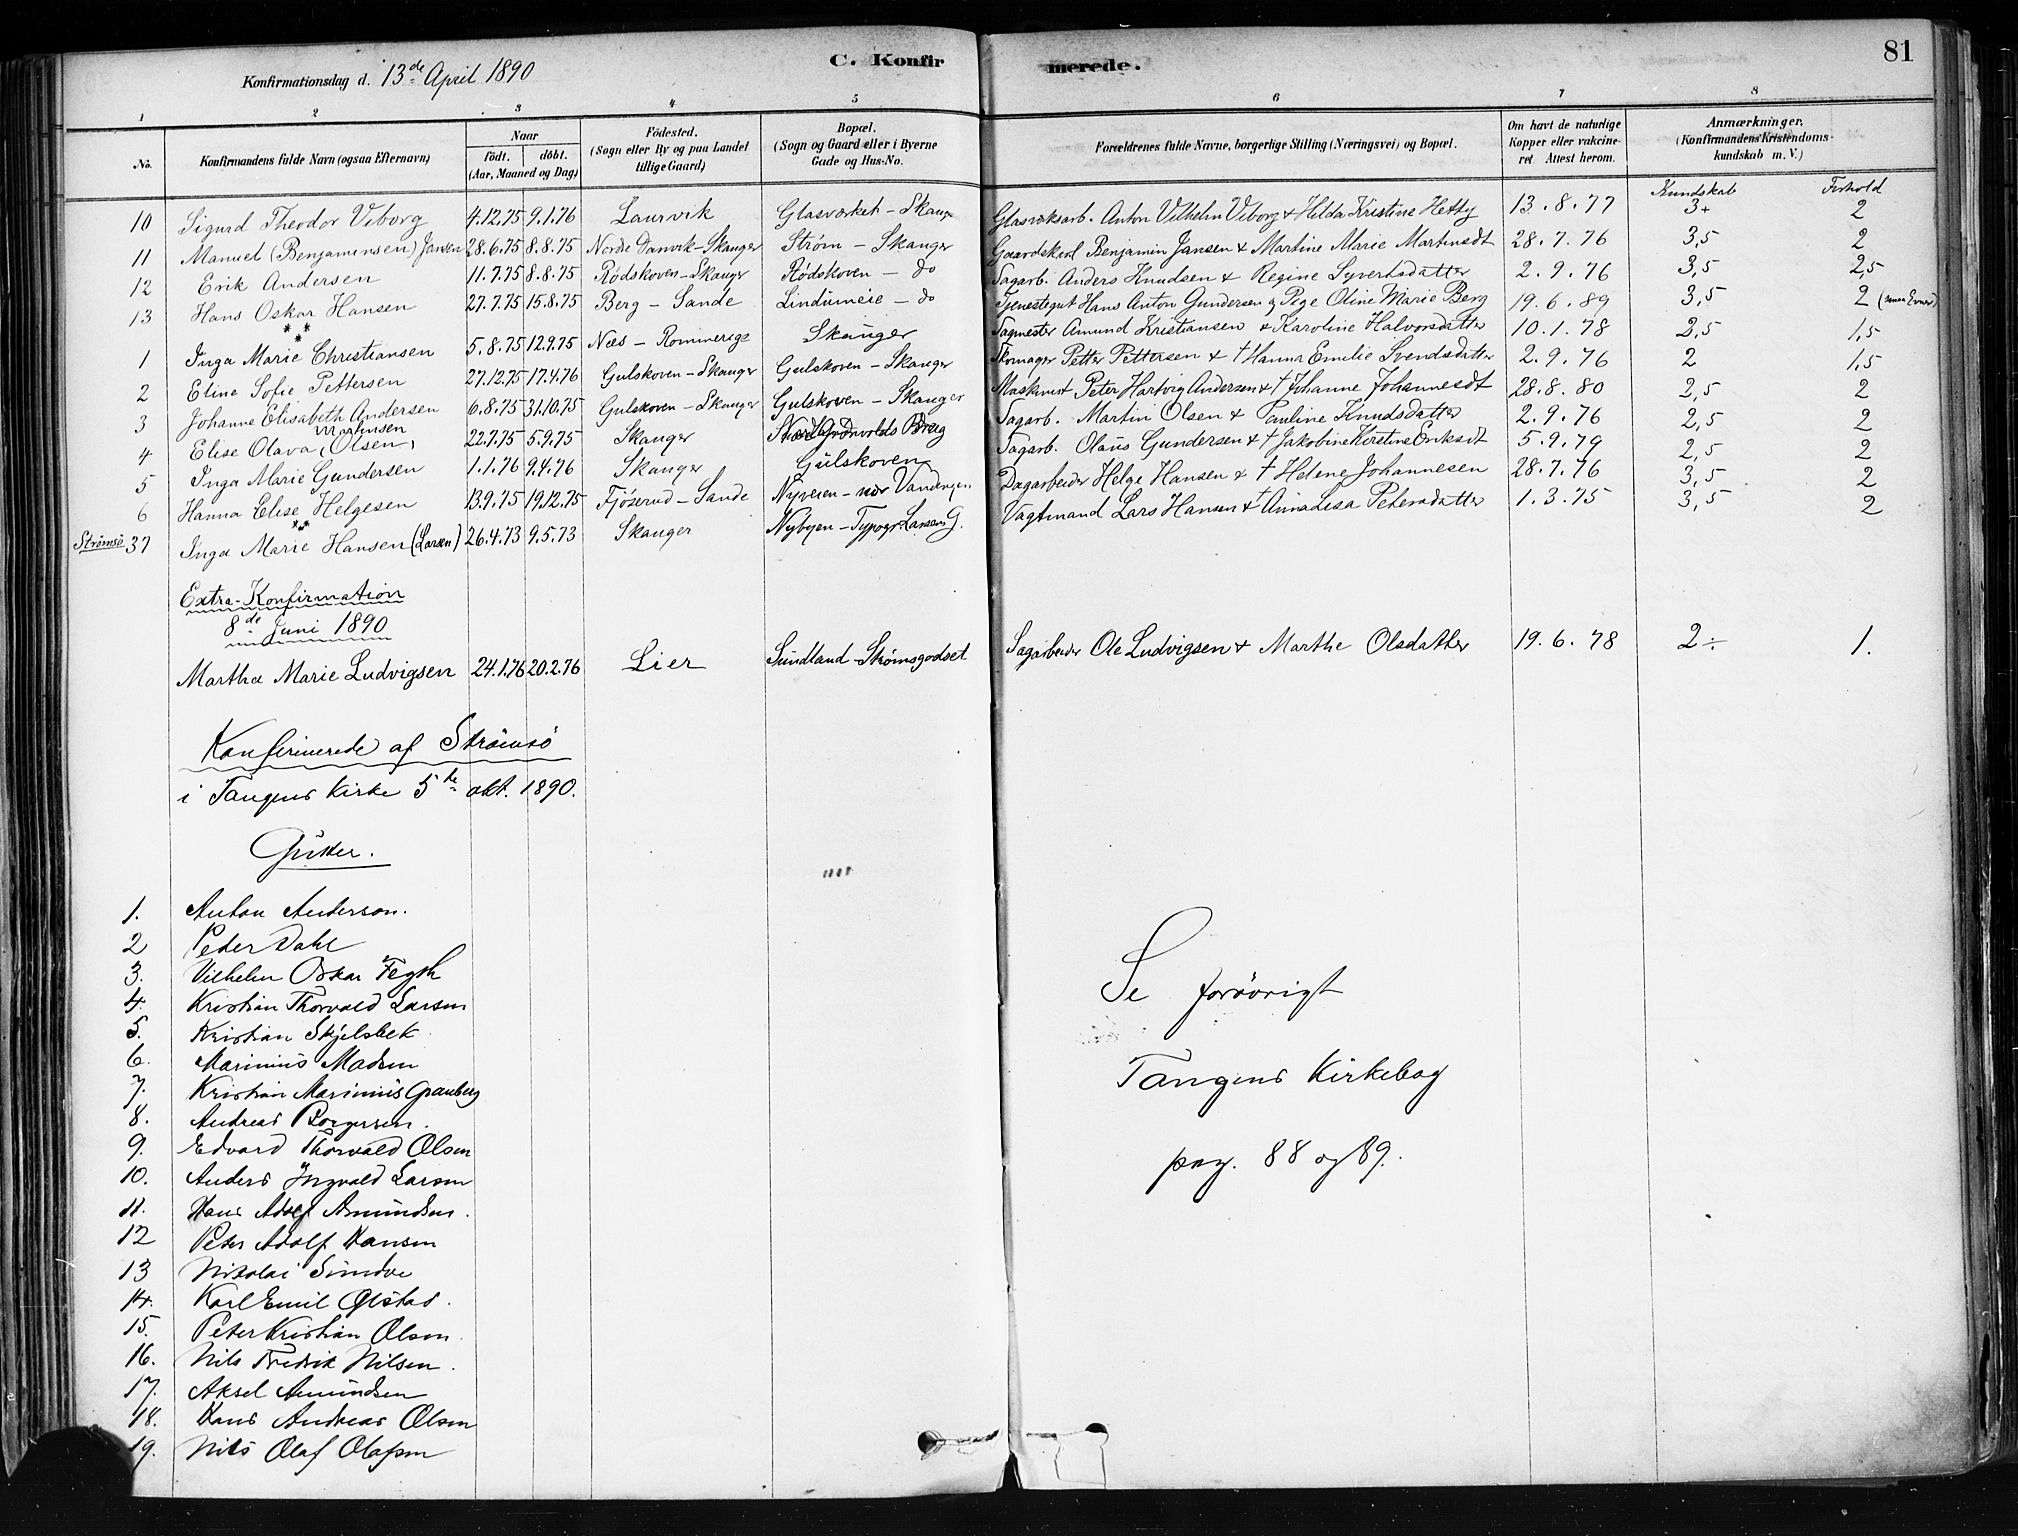 81
C. Konfirmerede.
Konfirmationsdag d. 13de April 1890
1 2 3 4 5 6 7 8
No. Konfirmandens fulde Navn (ogsaa Efternavn) Naar født. døbt. (Aar, Maaned og Dag) Fødested. (Sogn eller By og paa Landet tillige Gaard) Bopæl. (Sogn og Gaard eller i Byerne Gade og Hus-No. Forældrenes fulde Navne, borgerlige Stilling (Næringsvei) og Bopæl. Om havt de naturlige Kopper eller vakcineret Attest herom. Anmærkninger. (Konfirmandens Kristendomskundskab m. V.)
Kundskab Forhold
10 Sigurd Theodor Viborg 4.12.75 9.1.76 Laurvik Glasværket - Skanger Glasværksarb. Anton Vilhelm Viborg & Hilda Kristine Hetty 13.8.77 3+ 2
11 Manuel (Benjaminsen) Jansen 28.6.75 8.8.75 Nordre Danvik - Skanger Strøm - Skanger Gaardskarl Benjamin Jansen & Martine Marie Martinsdt 28.7.76 3,5 2
12 Erik Andersen 11.7.75 8.8.75 Rødskoven - Skanger Rødskoven - do Sagarb. Anders Knudsen & Regine Syvertsdatter 2.9.76 3,5 2,5
13 Hans Oskar Hansen 27.7.75 15.8.75 Berg - Sande Lindumeie - do Tjenestegut Hans Anton Gundersen og Pige Oline Marie Berg 19.6.89 3,5 2
1 Inga Marie Christiansen 5.8.75 12.9.75 Næs - Romerige Skanger Sagmester Amund Kristiansen & Karoline Halvorsdatter 10.1.78 2,5 1,5
2 Eline Sofie Pettersen 27.12.75 17.4.76 Gulskoven - Skanger Gulskoven - Skanger Skomager Petter Pettersen & † Hanna Emilie Svendsdatter 2.9.76 2 1,5
3 Johanne Elisabeth Andersen 6.8.75 31.10.75 Gulskoven - Skanger Gulskoven - Skanger Maskinist Peter Hartvig Andersen & † Johanne Johannesdt 28.8.80 2,5 2
4 Elise Olava (Olsen) Martinsen 22.7.75 5.9.75 Skanger Sagarb. Martin Olsen & Pauline Knudsdatter 2.9.76 2,5 2
5 Inga Marie Gundersen 1.1.76 9.4.76 Skanger Gulskoven Sagarb. Olaus Gundersen & † Jakobine Kirstine Eriksdt 5.9.79 2,5 2
6 Hanna Elise Helgesen 13.9.75 19.12.75 Fjøserud - Sande Nyveien - Dagarbeider Helge Hansen & † Helene Johannesen 28.7.76 3,5 2
Strømsø 37 Inga Marie Hansen (Larsen) 26.4.73 9.5.73 Skanger Nybyen - Typogr. Larsens G. Vagtmand Lars Hansen & † Anna Lisa Petersdatter 1.3.75 3,5 2
Extra-Konfirmation
8de Juni 1890
Martha Marie Ludvigsen 24.1.76 20.2.76 Lier Sundland - Strømsgodset Sagarbeider Ole Ludvigsen & Marthe Olsdatter 19.6.78 2÷ 1.
Konfirmerede af Strømsø
i Tangens Kirke 5te okt. 1890.
Gutter.
1. Anton Anderson.
2 Peder Dahl
3. Vilhelm Oskar Fegth
4. Kristian Thorvald Larsen
5. Kristian Skjelsbek
6. Marinius Madsen
7. Kristian Marinius Granberg
8. Andreas Borgersen.
9. Edvard Thorvald Olsen
10. Anders Ingvald Larsen
11. Hans Adolf Amundsen.
12 Peter Adolf Hansen
13 Nikolai Sundve
14. Karl Emil Ølstad.
15. Peter Kristian Olsen.
16. Nils Fredrik Nilsen.
17. Aksel Amundsen
18. Hans Andreas Olsen
19. Nils Olaf Olafsen
Se forøvrigt
Tangens Kirkebog
pag. 88 og 89.